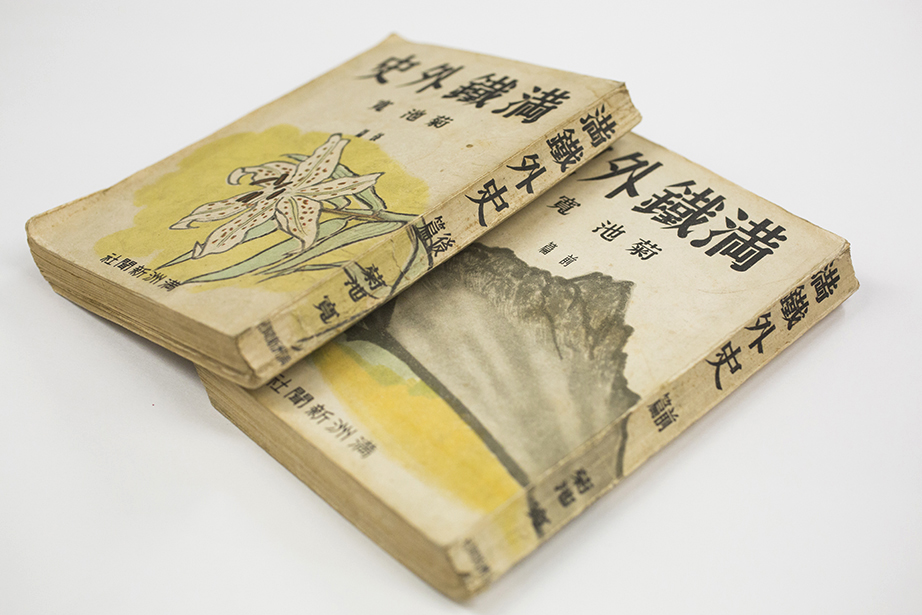 満鐵外史
菊池寛
満洲新聞社
満鐵外史
後篇
菊池寛
満鐵外
菊池寛
前篇
満洲新聞社
満鐵外史
前篇
菊池